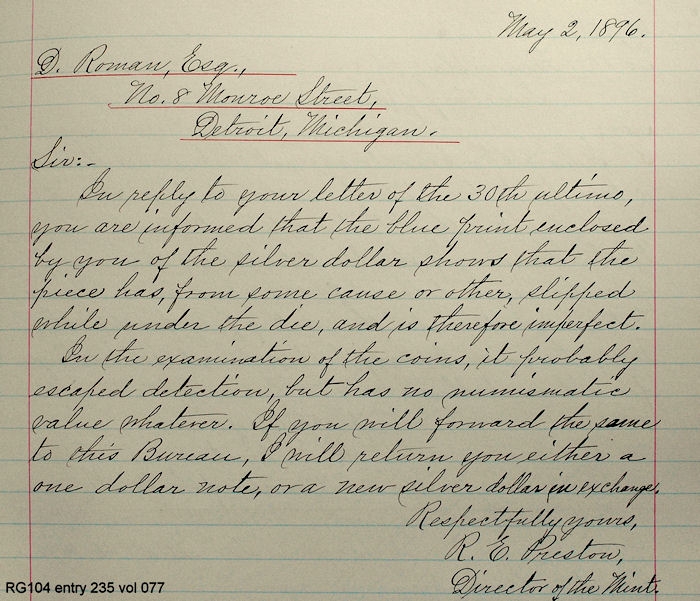 May 2, 1896.
D. Roman, Esq.,
No. 8 Monroe Street,
Detroit, Michigan.
Sir:-
In reply to your letter of the 30th ultimo,
you are informed that the blue print enclosed
by you of the silver dollar shows that the
piece has, from some cause or other, slipped
while under the die, and is therefore imperfect.
In the examination of the coins, it probably
escaped detection, but has no numismatic
value whatever. If you will forward the same
to this Bureau, I will return you either a
one dollar note, or a new silver dollar in exchange.
Respectfully yours,
R. E. Preston,
Director of the Mint.
RG104 entry 235 vol 077